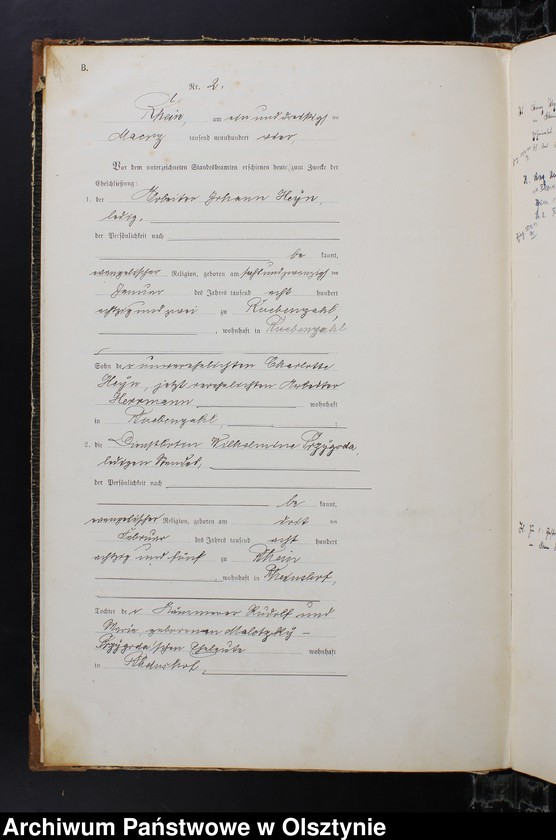 B.
Nr. 2.
Rhein, am ein und dreißigs ten
Maerz tausend neunhundert vier,
Vor dem unterzeichneten Standesbeamten erschienen heute, zum Zwecke der
Eheschließung:
1. der Arbeiter Johann Heyn,
ledig,
der Persönlichkeit nach
be kannt,
evangelischer Religion, geboren am sechs und zwanzigs ten
Januar des Jahres tausend acht hundert
achtzig und zwei zu Kuebenzahl,
, wohnhaft in Kuebenzahl
Sohn der unverehelichten Charlotte
Heyn, jetzt verehelichten Arbeiter
Herrmann wohnhaft
in Kuebenzahl,
2. die Dienstboten Wilhelmine Przygoda,
ledigen Standes,
der Persönlichkeit nach
be kannt,
evangelischer Religion, geboren am drit ten
Februar des Jahres tausend acht hundert
achtzig und fünf zu Rhein
, wohnhaft in
Tochter der Kämmerer Rudolf und
Marie geborenen Malotzky –
Przygoda'schen Eheleute wohnhaft
in
Archiwum Państwowe w Olsztynie